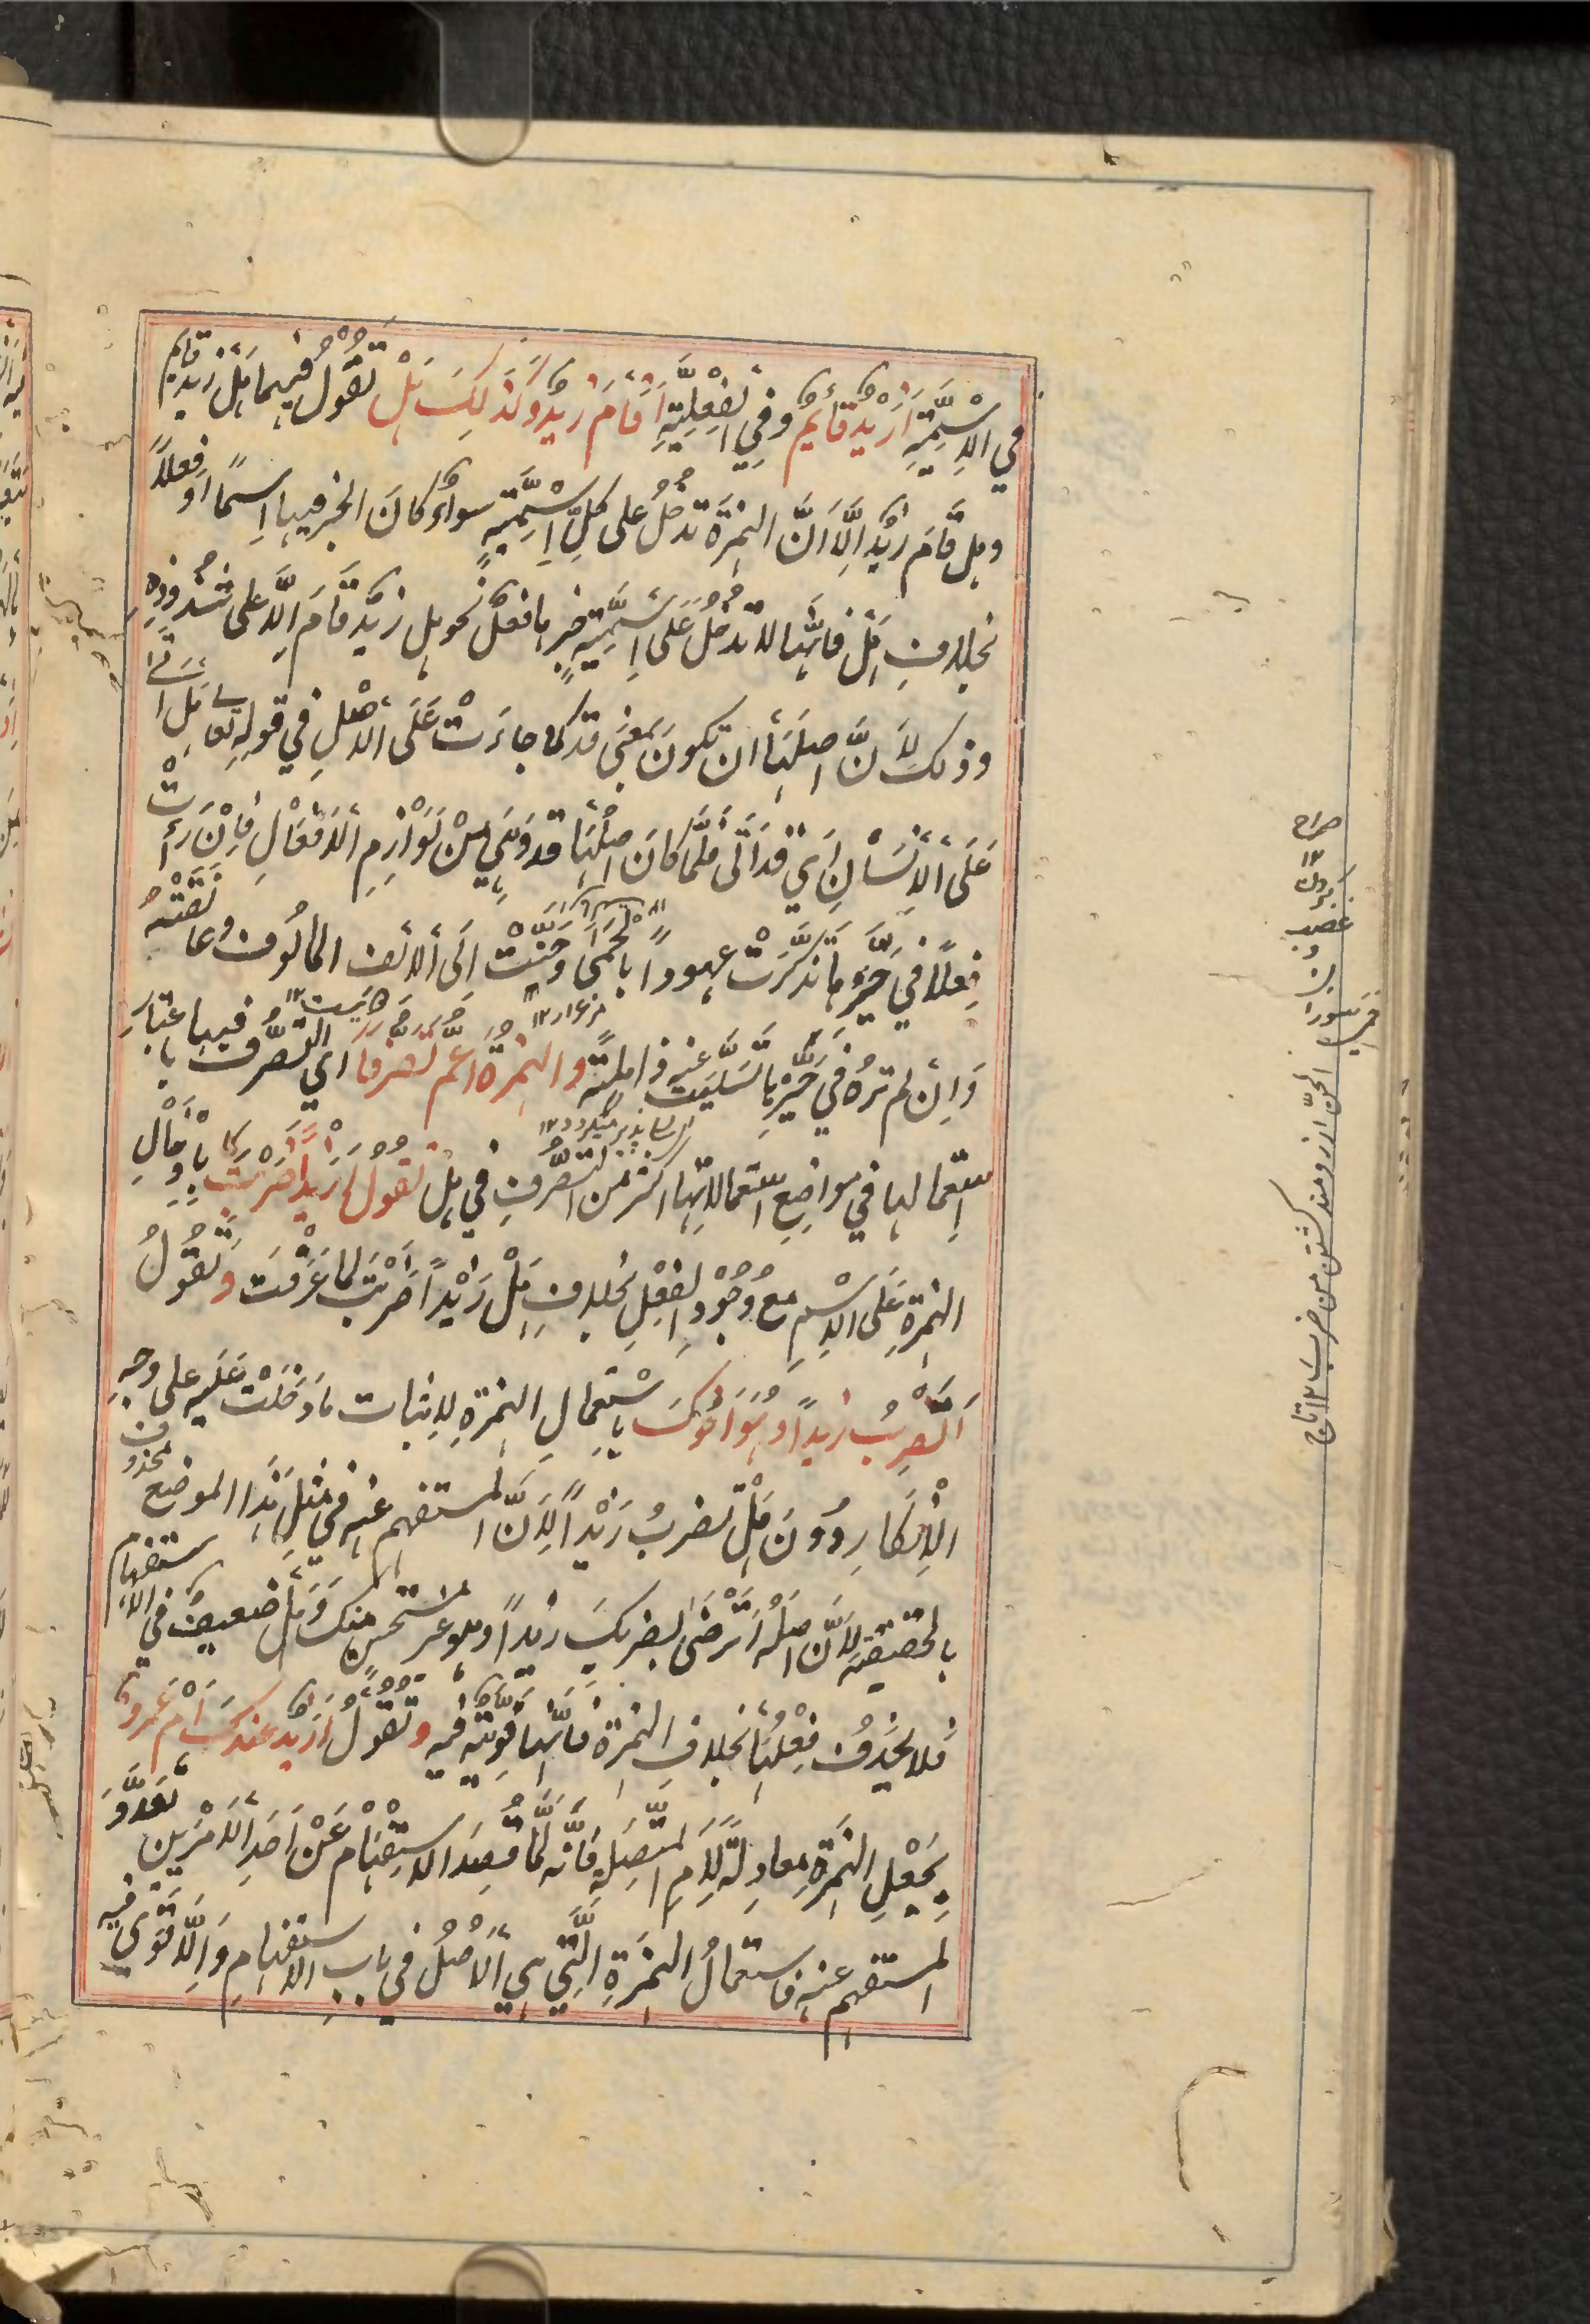 في الاسْمِيَّةِ أَزَيْدٌ قائمٌ وفي الفِعْلِيَّةِ أَقَامَ زيدٌ وكَذَلِكَ هَلْ تقُوْلُ فيهما هَلْ زيدٌ قايمٌ
وهل قَامَ زيدٌ إلَّا أنَّ الهمزَةَ تدخُلُ على كلِّ اِسْمِيَّةٍ سواءٌ كانَ الخبر فيها اِسمًا أو فِعلاً
بخلافِ هَلْ فانَّها لا تدخُلُ عَلَى اِسْمِيَّةٍ خبرها فعلٌ نحو هل زيدٌ قَامَ اِلّا على شُذوذٍ
وذلك لأَنَّ اصلَهَا ان تكونَ بمعنَى قد كما جاءَتْ عَلَى الأصْلِ في قولِهِ تعالى هَل أَتَى
عَلَى الأِنْسَانِ اَي قَد أَتَى فلَمَّا كانَ اصلُهَا قد وَهِيَ مِنْ لَوَازِمِ الأَفْعَالِ فاِنْ رَأَتْ
فِعلاً في حَيِّزِهَا تذكَّرَتْ عهوداً بِالْحِمَى وَحَنَّتْ اِلَى الالف المالُوف وعانَقَتْهُ
وَاِنْ لم ترهُ في حَيِّزِهَا تَسَلَّيَت عنه ذاهلةً والهمزةُ اَعَمُّ تَصَرُّفًا اي التصَرُّف فيها باعتبارِ
اِستعمالها في مواضِعِ استعمالاتِها اكثر من التصَرُّفِ في هل تقُولُ أزَيداً ضَرَبْتَ بِإدخالِ
الهمزةِ عَلَى الاِسْمِ مع وُجُوْدِ الفِعْلِ بخلافِ هَلْ زَيْداً ضَرَبْتَ لما عَرَفتَ وتقُولُ
اَتَضْرِبُ زيداً وهُوَ اَخُوكَ بِاسْتِعمالِ الهمزةِ لإثبات ما دَخَلَتْ عَلَيه على وجهِ
الْإِنْكَارِ دُونَ هَلْ تضربُ زَيْداً لِأنَّ المستفهم عنه في مثل هَذَا الموضع محذوف
بالحقيقةِ لأَنَّ اصلُه أَتَرْضَى بضربكَ زيداً وهو غير مستحسنٍ منك وَهَلْ ضعيفٌ في الاستفهام
فلا يُحذَفُ فِعْلُهَا بخلافِ الهمزة فانَّها قويّةٌ فيه وتقُوْلُ أزَيدٌ عندكَ اَمْ عَمْروٌ
بِجَعْلِ الهمْزَةِ معادِلةً لِاَمِ المتّصِلةِ فَاِنَّه لمَّا قُصِدَ الاستِفْهَام عَنْ اَحَدِ الأَمْرَينِ تَعَدَّدَ
المستفهم عنه فاستعمالُ الهمْزَةِ الَّتِي هي الْأصْلُ في باب الاستفهامِ وَالْأَقْوَى فيه
صراح
غضب
الحَنّ آرزومند گشتن من ضرب ۱۲ تاج